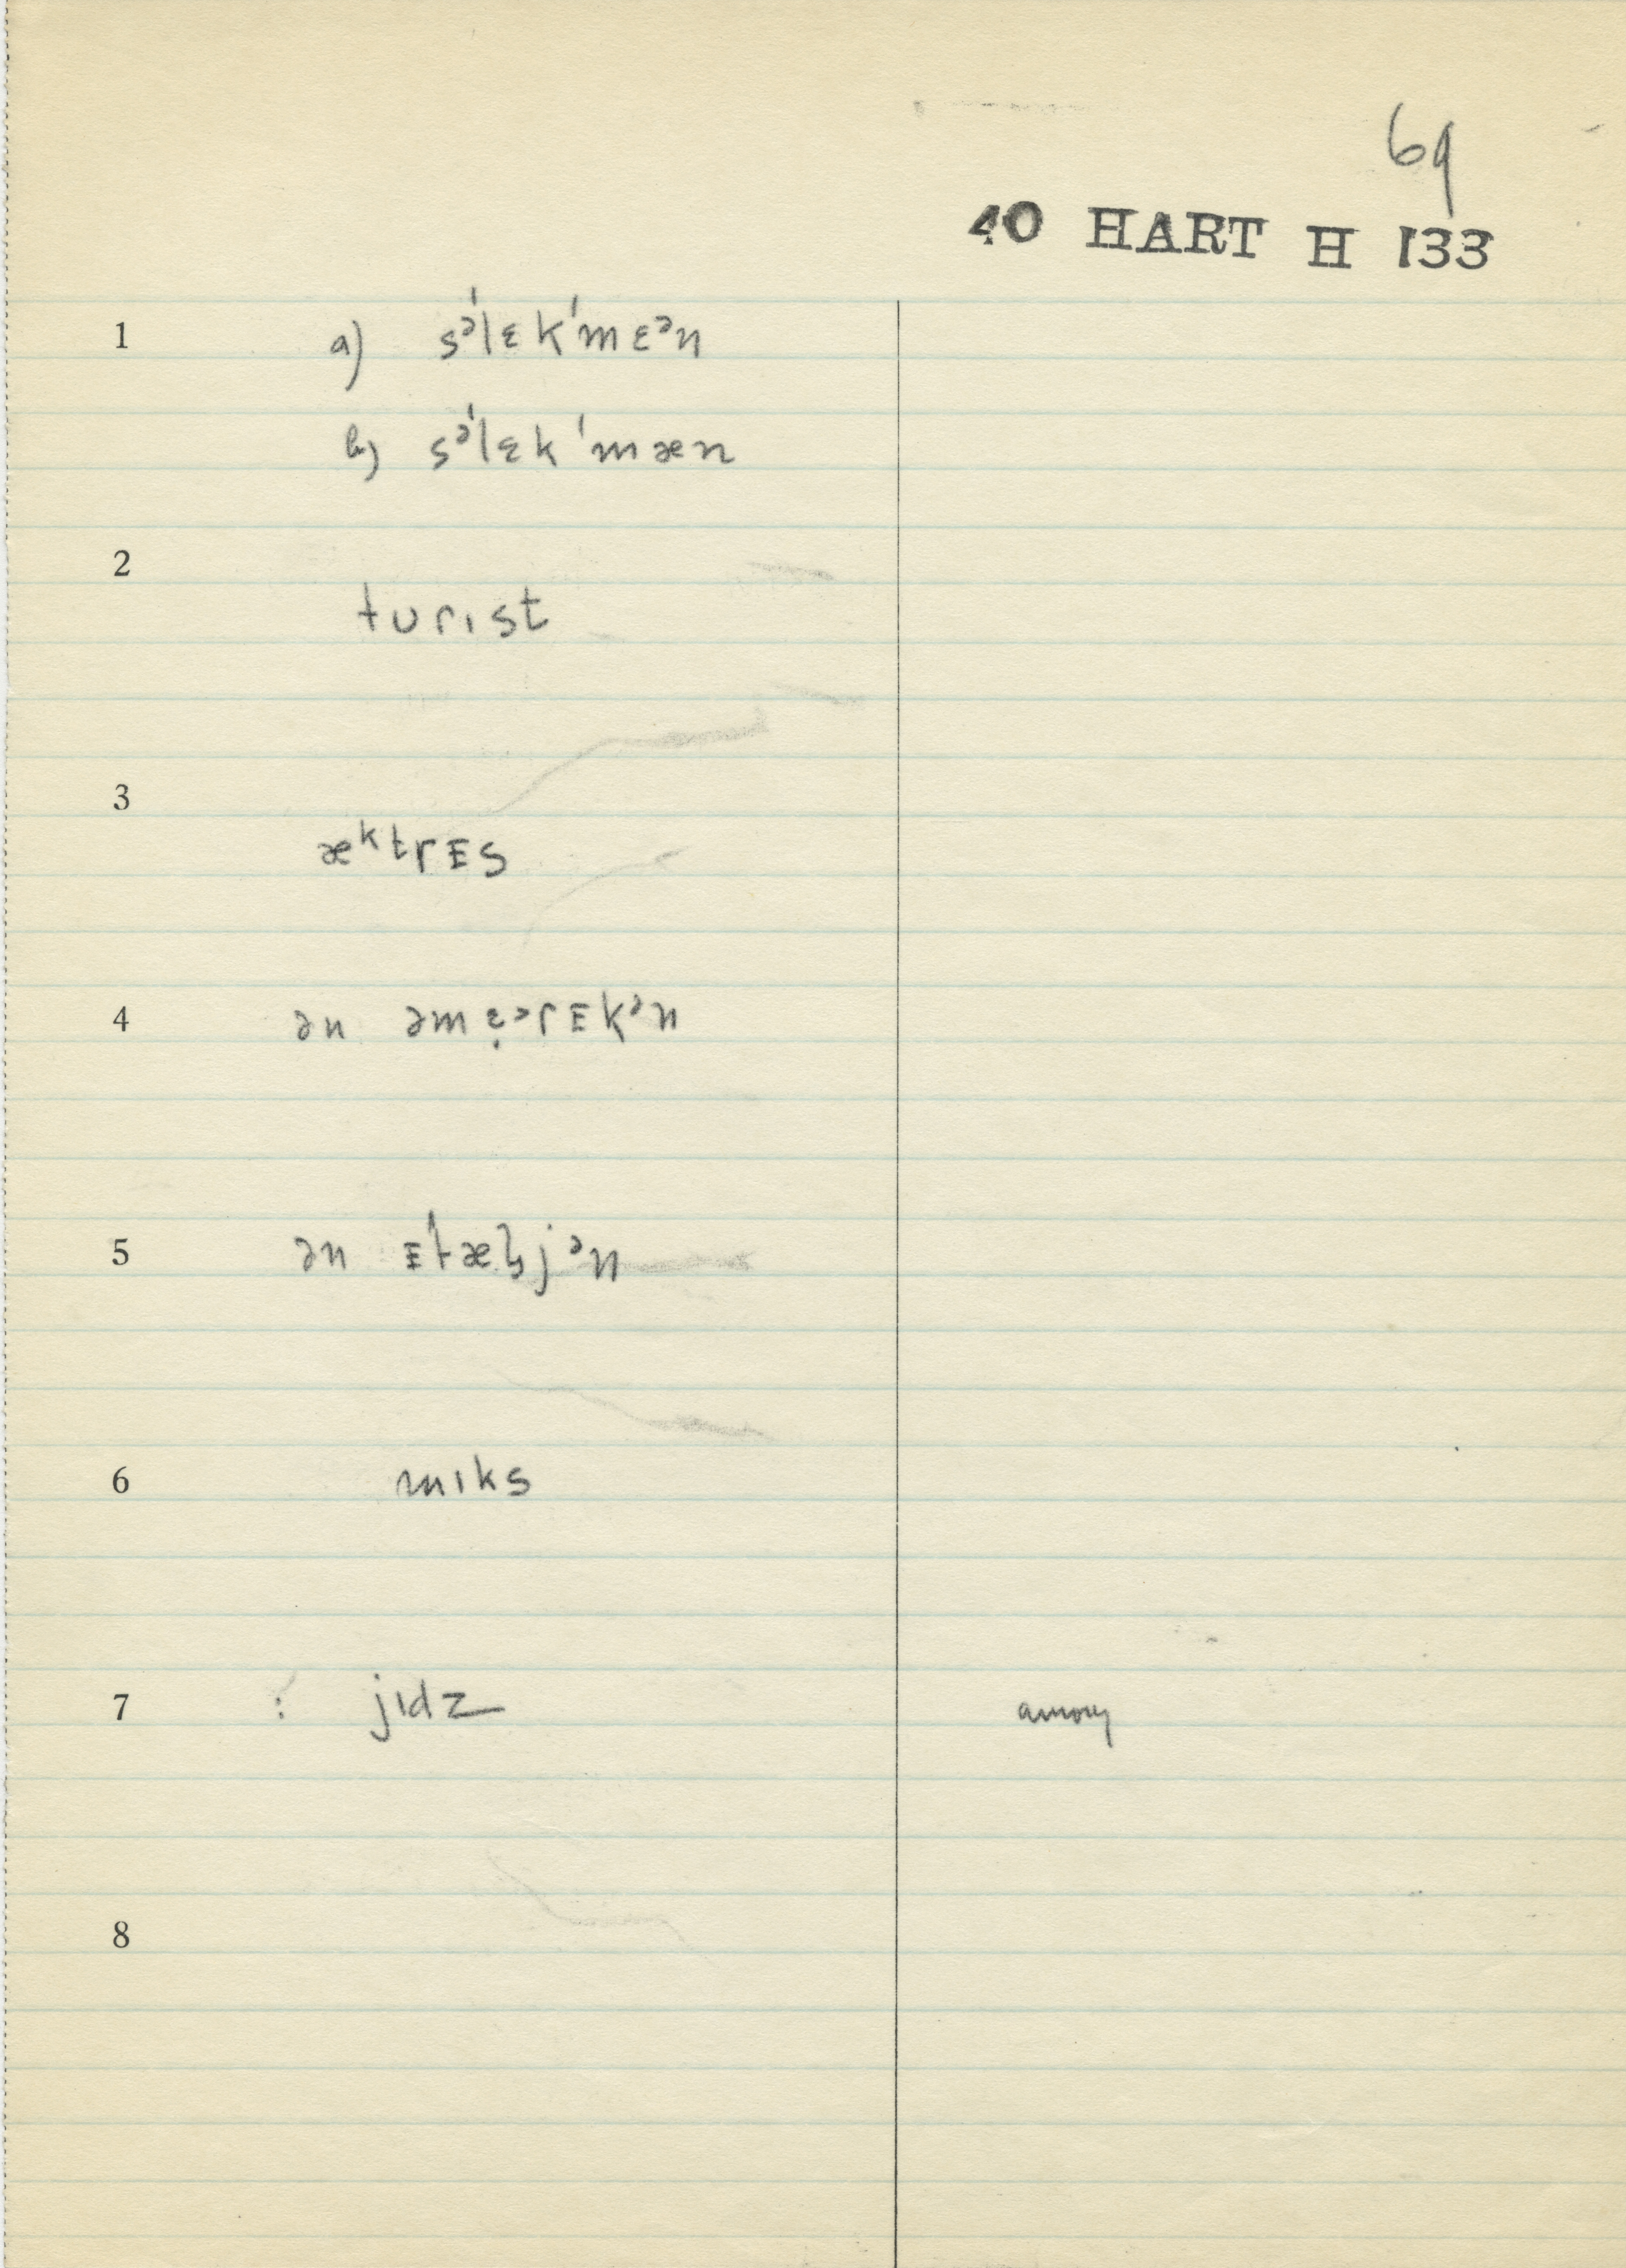 69
40 HART H 133
1 a) sᵊˈlɛkˈmɛᵊn
b) sᵊˈlɛkˈmæn
2
tʊrɪst
3
æᵏtrᴇs
4 ən əmɛ̣ᵊrᴇkᵊn
5 ən
6 mɪks
7 : jɪdz among
8